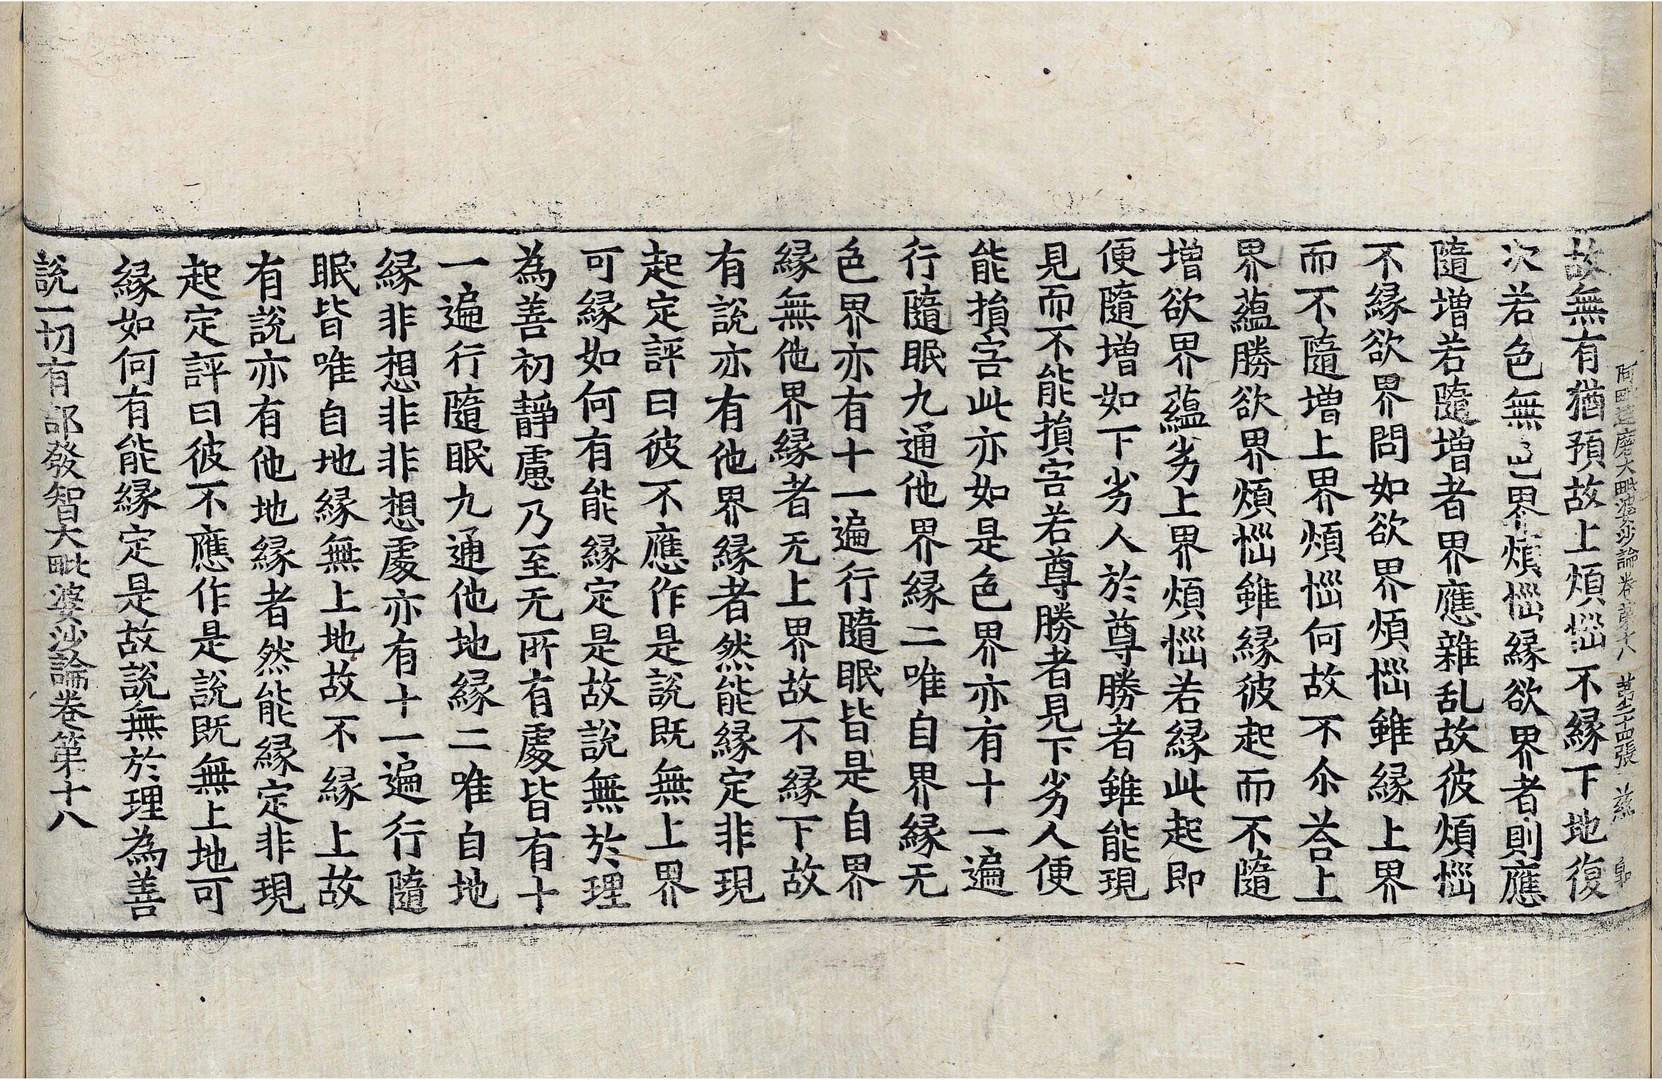 阿毗達磨大毗婆沙論卷第十八 第二十四張 慈
故無有猶預故上煩惱不緣下地復
次若色無色界煩惱緣欲界者則應
隨增若隨增者界應雜乱故彼煩惱
不緣欲界問如欲界煩惱雖緣上界
而不隨增上界煩惱何故不尒荅上
界蘊勝欲界煩惱雖緣彼起而不隨
增欲界蘊劣上界煩惱若緣此起即
便隨增如下劣人於尊勝者雖能現
見而不能損害若尊勝者見下劣人便
能損害此亦如是色界亦有十一遍
行隨眠九通他界緣二唯自界緣无
色界亦有十一遍行隨眠皆是自界
緣無他界緣者无上界故不緣下故
有說亦有他界緣者然能緣定非現
起定評曰彼不應作是說既無上界
可緣如何有能緣定是故說無於理
為善初靜慮乃至无所有處皆有十
一遍行隨眠九通他地緣二唯自地
緣非想非非想處亦有十一遍行隨
眠皆唯自地緣無上地故不緣上故
有說亦有他地緣者然能緣定非現
起定評曰彼不應作是說既無上地可
緣如何有能緣定是故說無於理為善
說一切有部發智大毗婆沙論卷第十八